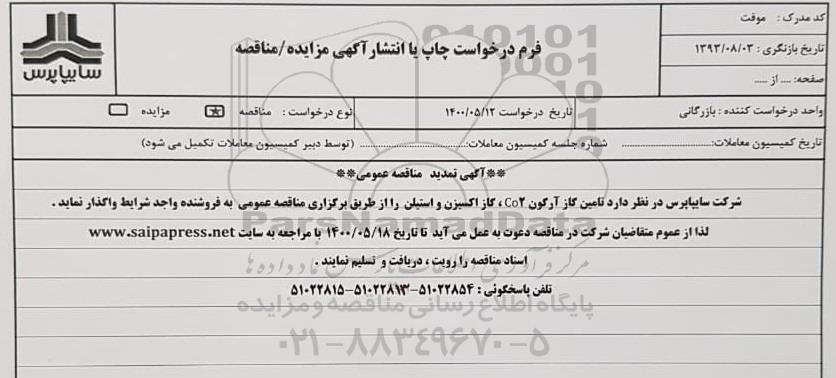 کد مدرک : موقت
تاریخ بازنگری : ۱۳۹۳/۰۸/۰۳
صفحه: .... از .....
فرم درخواست چاپ یا انتشار آگهی مزایده/مناقصه
سایپاپرس
واحد درخواست کننده : بازرگانی
تاریخ درخواست ۱۴۰۰/۰۵/۱۲
نوع درخواست : مناقصه مزایده
تاریخ کمیسیون معاملات:............................ شماره جلسه کمیسیون معاملات:............................ (توسط دبیر کمیسیون معاملات تکمیل می شود)
**آگهی تمدید مناقصه عمومی**
شرکت سایپاپرس در نظر دارد تامین گاز آرگون Co۲ ، گاز اکسیزن و استیلن را از طریق برگزاری مناقصه عمومی به فروشنده واجد شرایط واگذار نماید .
لذا از عموم متقاضیان شرکت در مناقصه دعوت به عمل می آید تا تاریخ ۱۴۰۰/۰۵/۱۸ با مراجعه به سایت www.saipapress.net
اسناد مناقصه را رویت ، دریافت و تسلیم نمایند .
تلفن پاسخگوئی : ۵۱۰۲۲۸۵۴-۵۱۰۲۲۸۱۳-۵۱۰۲۲۸۱۵
ParsNamadData
مرکز فرآوری اطلاعات پارس نماد داده ها
پایگاه اطلاع رسانی مناقصه و مزایده
۰۲۱-۸۸۳۴۹۶۷۰-۵